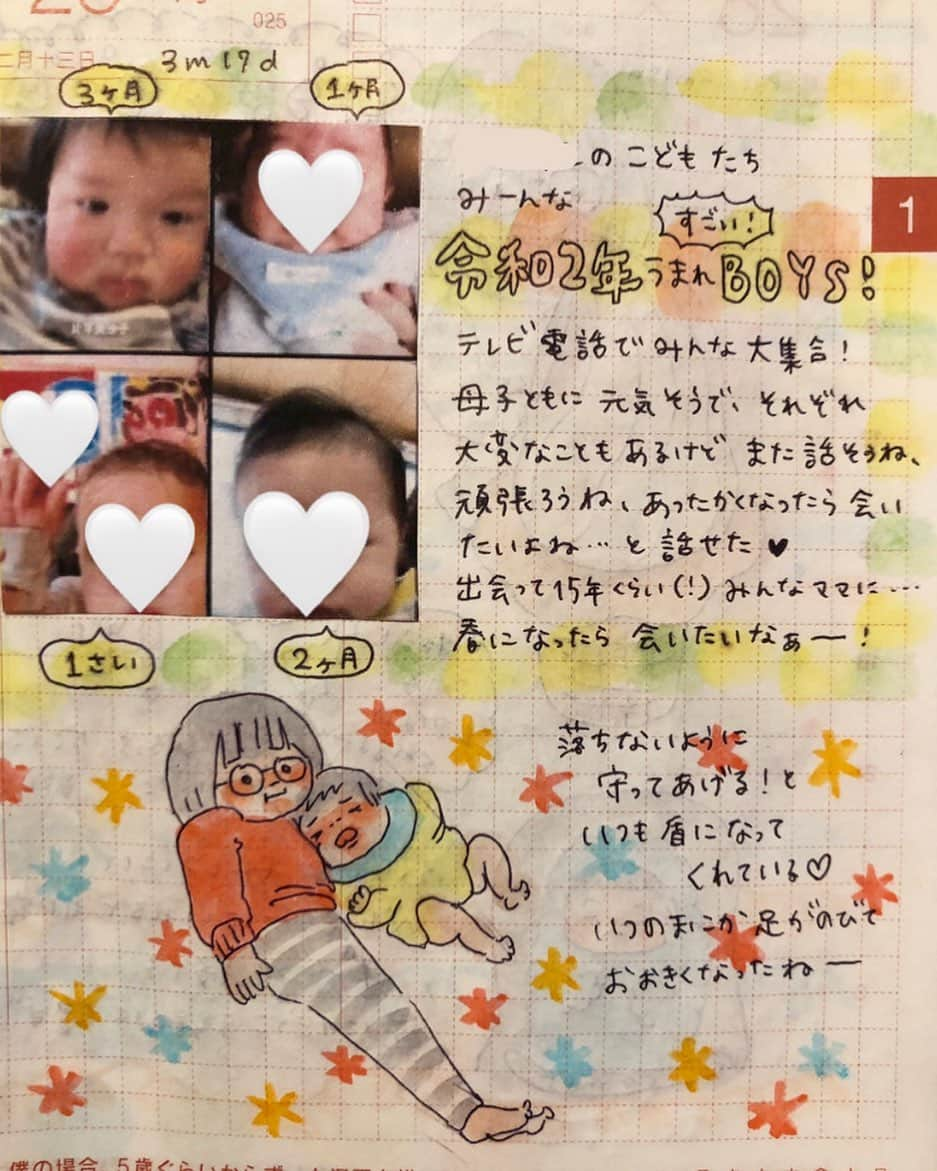 025
二月十三日
3m19d
3ヶ月
1ヶ月
のこどもたち
みーんな
すごい!
令和2年うまれBOYS!
1
テレビ電話でみんな大集合!
母子ともに元気そうで、それぞれ
大変なこともあるけどまた話そうね、
頑張ろうね、あったかくなったら会い
たいよね…と話せた♥
出会って15年くらい(!)みんなママに…
春になったら会いたいなぁー!
1さい
2ヶ月
落ちないように
守ってあげる!と
いつも盾になって
くれている♡
いつのまにか足がのびて
おおきくなったねー
僕の場合、5歳ぐらいからず